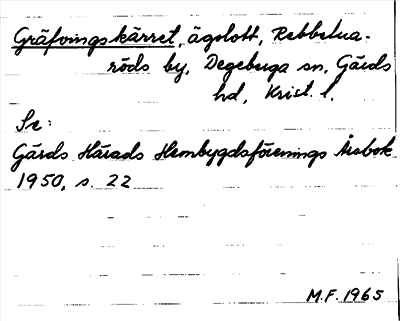 Gräfvningskärret, ägolott, Rebbetua-
röds by, Degeberga sn, Gärds
hd, Krist. l.
Se:
Gärds Härads Hembygdsförenings Årsbok
1950, s. 22
M.F. 1965